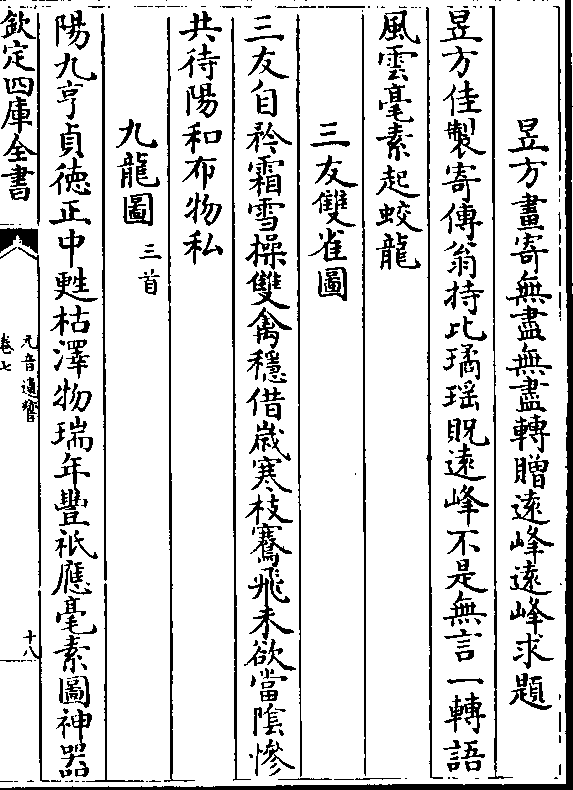 昱方畫寄無盡無盡轉贈遠峰遠峰求題
昱方佳製寄傳翁持比璚瑶貺遠峰不是無言一轉語
風雲毫素起蛟龍
三友雙雀圖
三友自矜霜雪操雙禽穩借歳寒枝騫飛未欲當隂慘
共待陽和布物私
九龍圖三首
陽九亨貞徳正中甦枯澤物瑞年豐祇應毫素圖神器
欽定四庫全書
元音遺響
卷七
十八